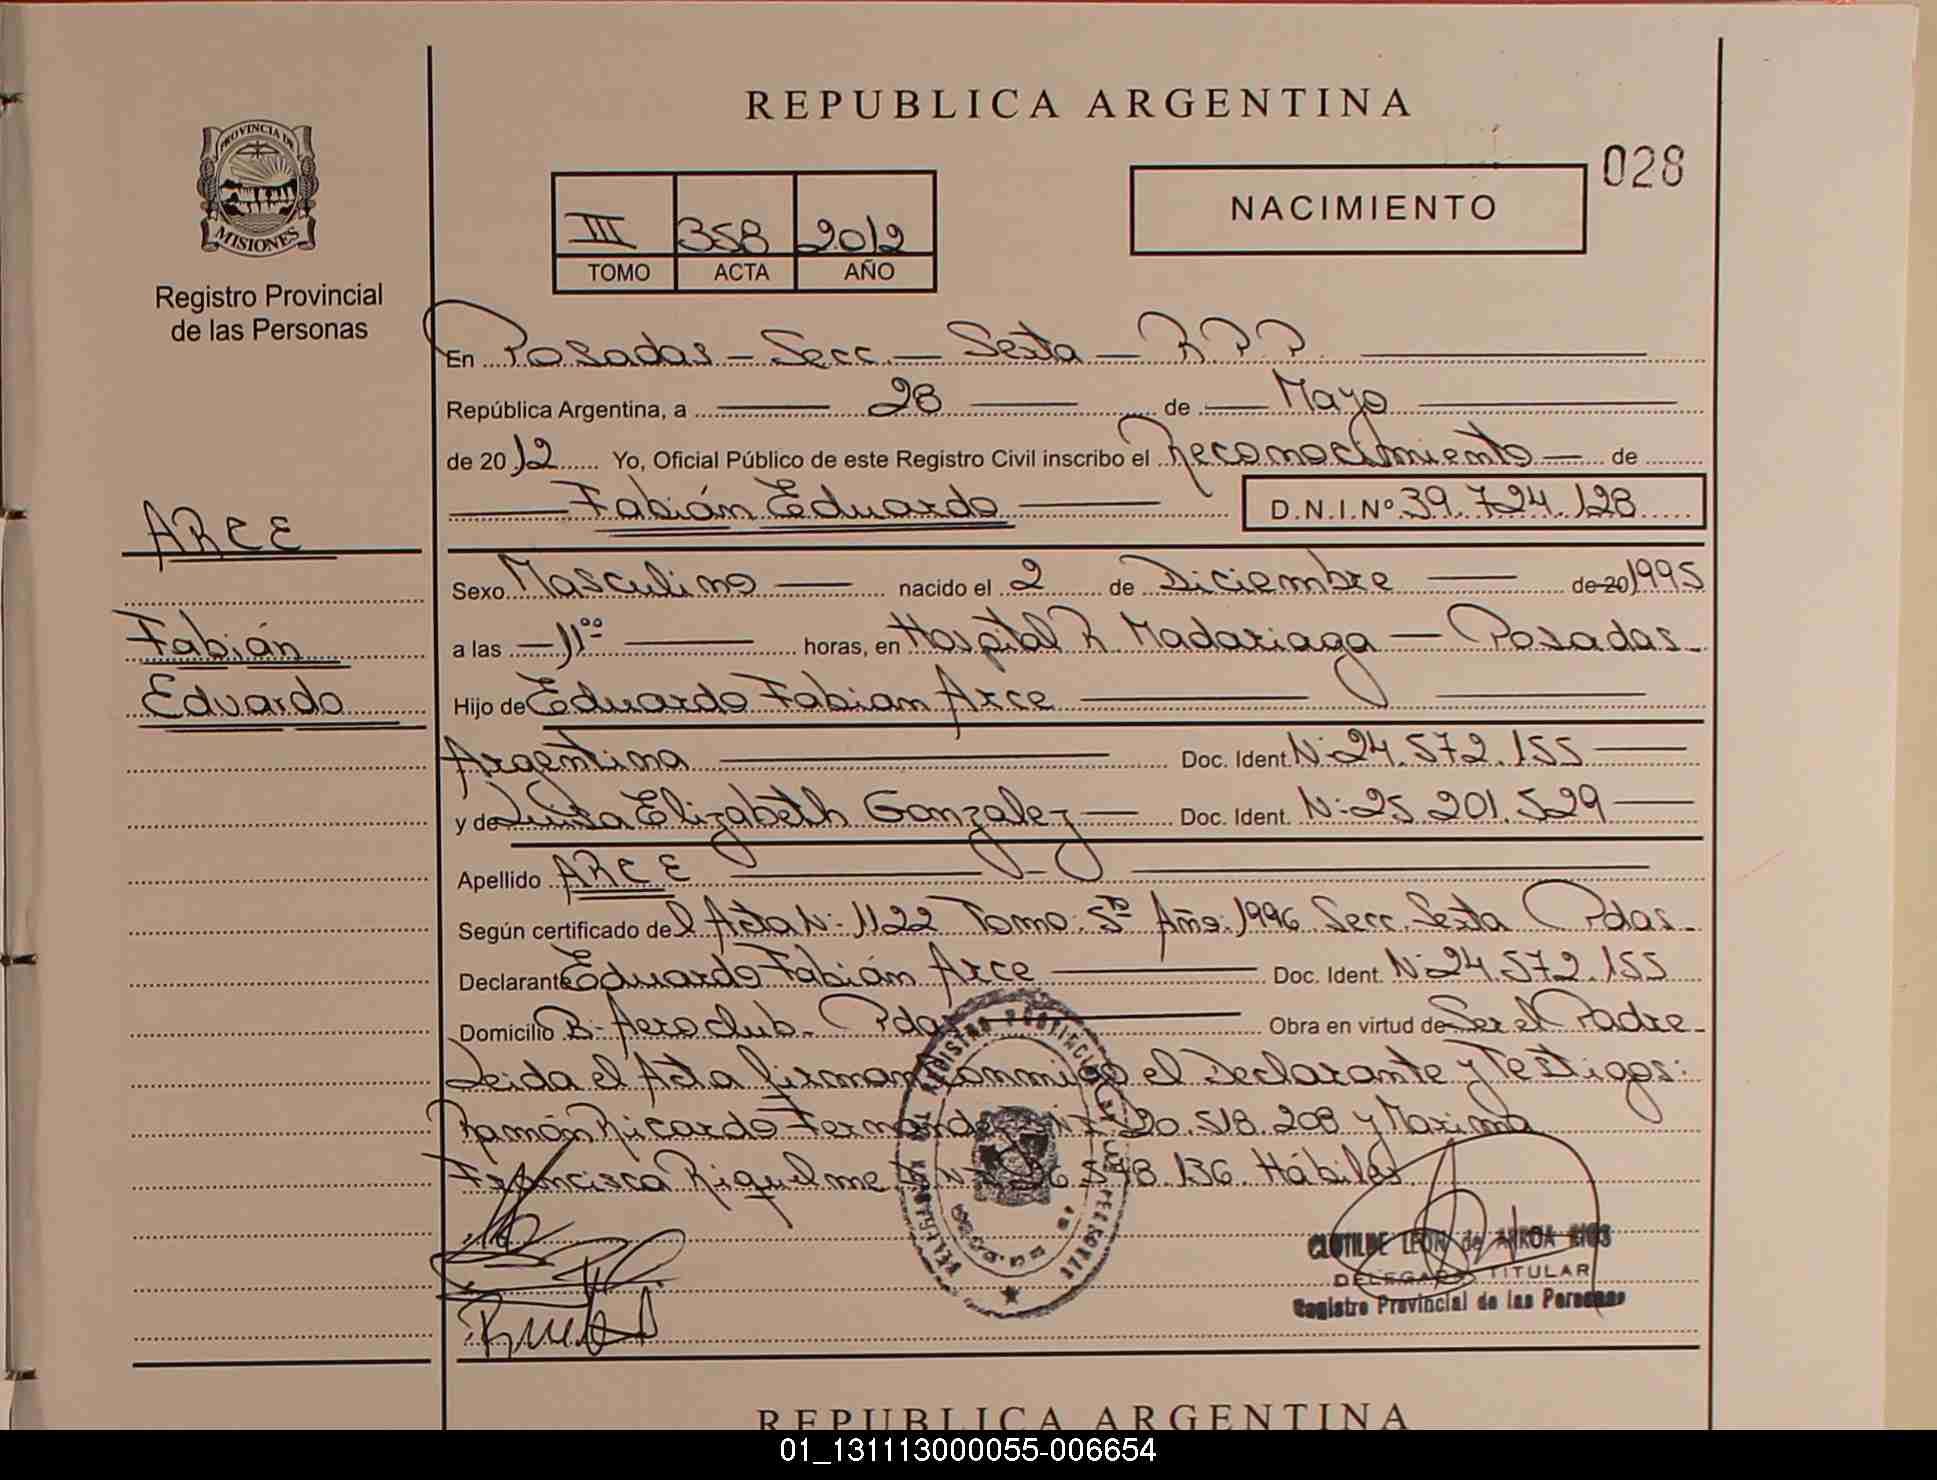 REPUBLICA ARGENTINA
028
PROVINCIA DE
MISIONES
Registro Provincial
de las Personas
III 358 2012
TOMO ACTA AÑO
NACIMIENTO
En Posadas - Secc. - Sexta - R.P.P.
República Argentina, a 28 de Mayo
de 2012 Yo, Oficial Público de este Registro Civil inscribo el Reconocimiento de
Fabián Eduardo D.N.I.Nº 39.724.128
ARCE
Fabián
Eduardo
Sexo Masculino nacido el 2 de Diciembre de 20 1995
a las 11ºº horas, en Hospital R. Madariaga - Posadas-
Hijo de Eduardo Fabian Arce
Argentina Doc. Ident. N:24.572.155
y de Luisa Elizabeth Gonzalez Doc. Ident. N:25.201.529
Apellido ARCE
Según certificado del Acta N: 1122 Tomo: 5to Año: 1996 Secc. Sexta Pdas-
Declarante Eduardo Fabián Arce Doc. Ident. N:24.572.155
Domicilio B- Aeroclub- Pdas Obra en virtud de Ser el Padre-
Leida el Acta firman conmigo el Declarante y Testigos:
Ramón Ricardo Fernandez 20.518.208 y Maxima
Francisca Riquelme 578.136. Hábiles
CLOTILDE LEON de ARROA RIOS
DELEGADA TITULAR
Registro Provincial de las Personas
REPUBLICA ARGENTINA
01_131113000055-006654